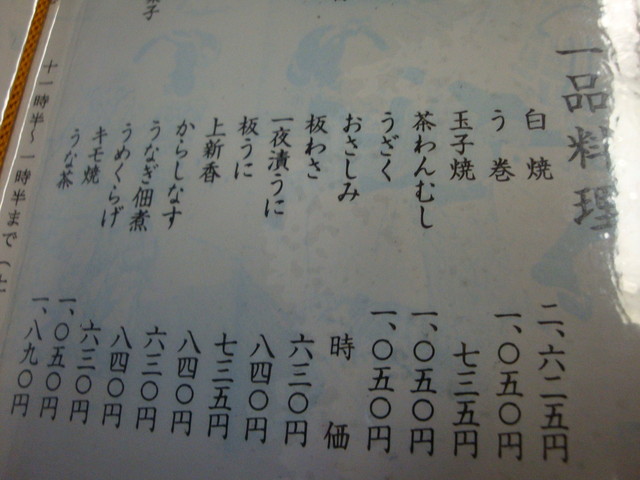 一品料理
白焼 二、六二五円
う巻 一、〇五〇円
玉子焼 七三五円
茶わんむし 一、〇五〇円
うざく 一、〇五〇円
おさしみ 時価
板わさ 六三〇円
一夜漬うに 八四〇円
板うに 七三五円
上新香 八四〇円
からしなす 六三〇円
うなぎ佃煮 八四〇円
うめくらげ 六三〇円
キモ焼 一、〇五〇円
うな茶 一、八九〇円
子
十一時半〜一時半まで（